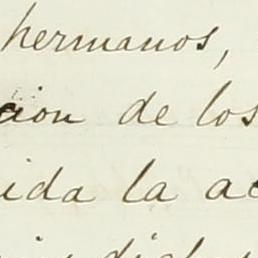 hermanos,
cion de los
ida la ac